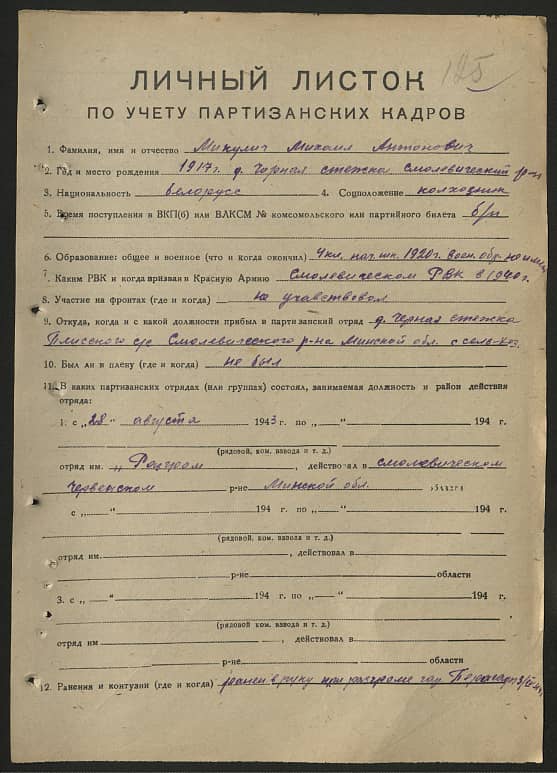 125
ЛИЧНЫЙ ЛИСТОК
ПО УЧЕТУ ПАРТИЗАНСКИХ КАДРОВ
1. Фамилия, имя и отчество Микулич Михаил Антонович
2. Год и место рождения 1917г. д. Чорная стежка Смолевический р-н
3. Национальность белорусс 4. Соцположение колхозник
5. Время поступления в ВКП(б) или ВЛКСМ № комсомольского или партийного билета б/п
6. Образование: общее и военное (что и когда окончил) 4 кл. нач. шк. 1920г. воен. обр. не имеет
7. Каким РВК и когда призван в Красную Армию Смолевическом РВК в 1940г.
8. Участие на фронтах (где и когда) не учавствовал
9. Откуда, когда и с какой должности прибыл в партизанский отряд д. Черная стежка
Плисского с/с Смолевического р-на Минской обл. с сель-хоз.
10. Был ли в плену (где и когда) не был
11. В каких партизанских отрядах (или группах) состоял, занимаемая должность и район действия
отряда:
1. с „28" августа 1943 г. по „ " 194 г.
(рядовой, ком. взвода и т. д.)
отряд им. „Разгром , действовал в смолевическом
червенском р-не Минской обл. области
с „ " 194 г. по „ " 194 г.
(рядовой, ком. взвода и т. д.)
отряд им. , действовал в
р-не области
3. с „ " 194 г. по „ " 194 г.
(рядовой, ком. взвода и т. д.)
отряд им , действовал в
р-не области
12. Ранения и контузии (где и когда) ранен в руку при разгроме гар.